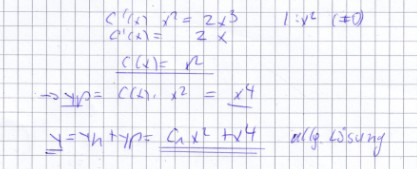 C'(x) x² = 2x³ | :x² (≠0)
C'(x) = 2x
C(x) = x²
→ yp = C(x) · x² = x⁴
y = yh + yp = C₁x² + x⁴ allg. Lösung